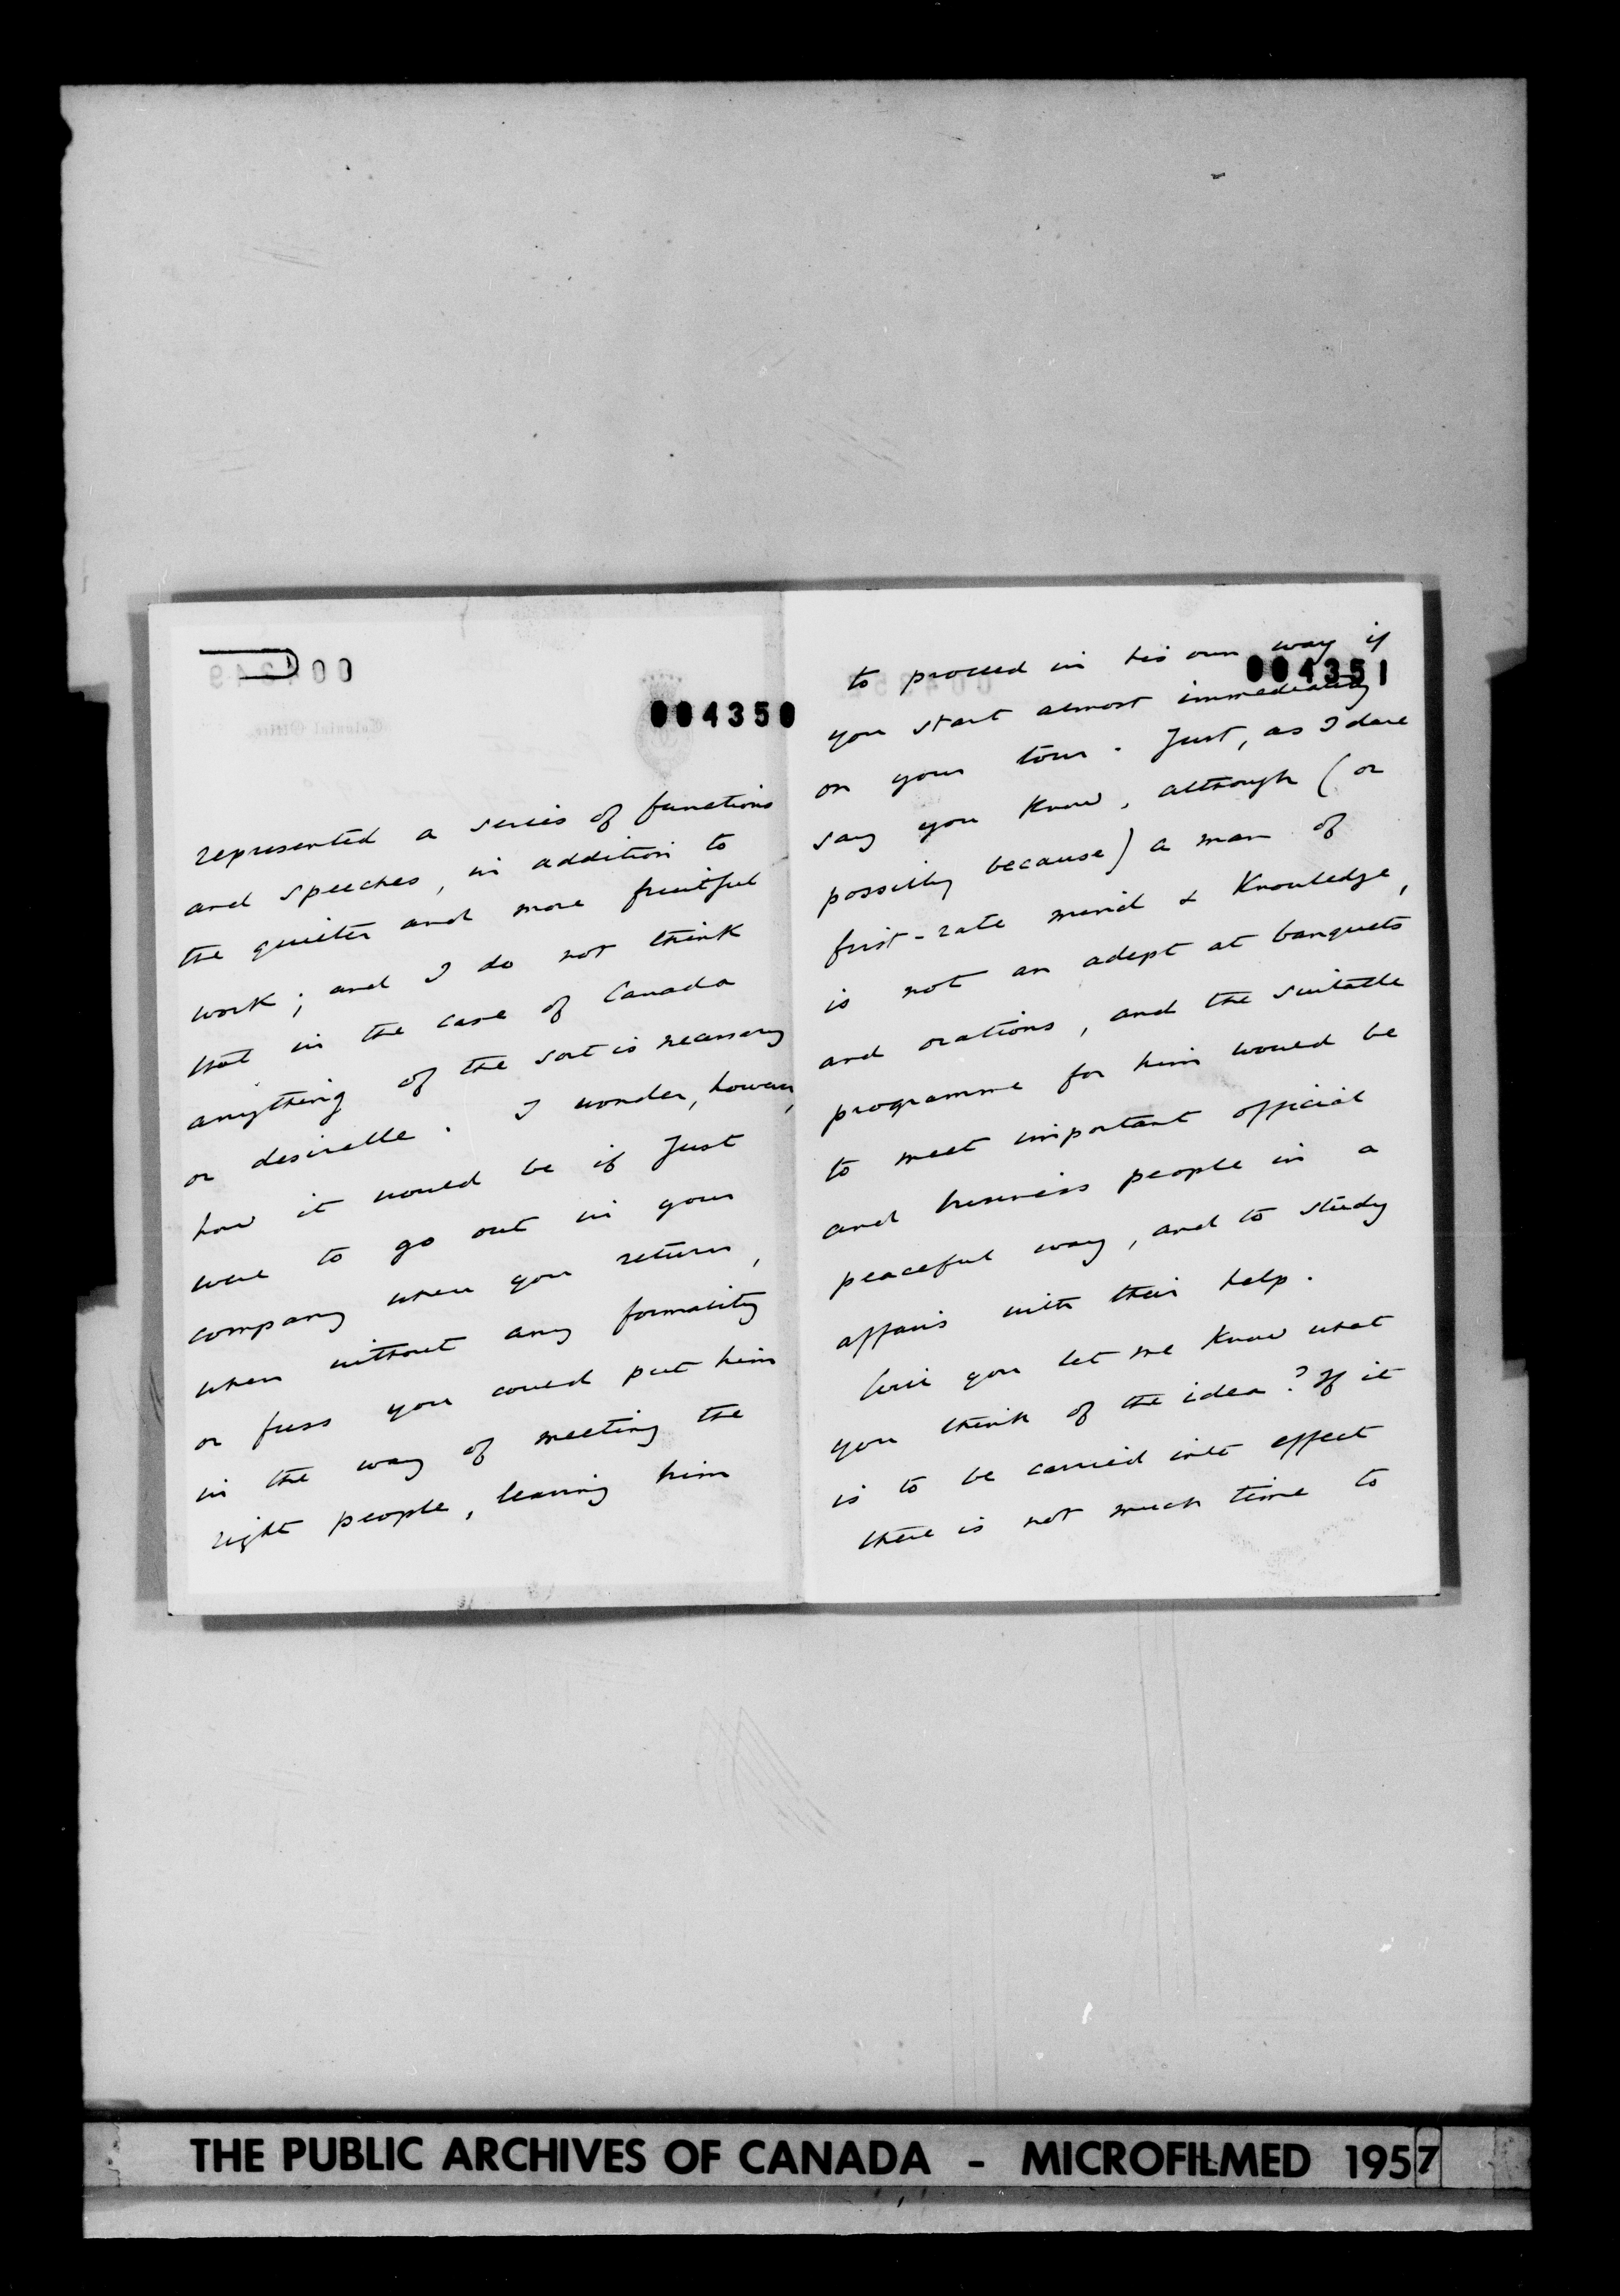 004350
represented a series of functions
and speeches, in addition to
the quieter and more fruitful
work; and I do not think
that in the case of Canada
anything of the sort is necessary
or desirable. I wonder, however,
how it would be if Just
were to go out in your
company when you return,
when without any formality
or fuss you could put him
in the way of meeting the
right people, leaving him
004351
to proceed in his own way if
you start almost immediately
on your tour. Just, as I dare
say you know, although (or
possibly because) a man of
first-rate mind & knowledge,
is not an adept at banquets
and orations, and the suitable
programme for him would be
to meet important official
and business people in a
peaceful way, and to study
affairs with their help.
Will you let me know what
you think of the idea? If it
is to be carried into effect
there is not much time to
THE PUBLIC ARCHIVES OF CANADA - MICROFILMED 1957